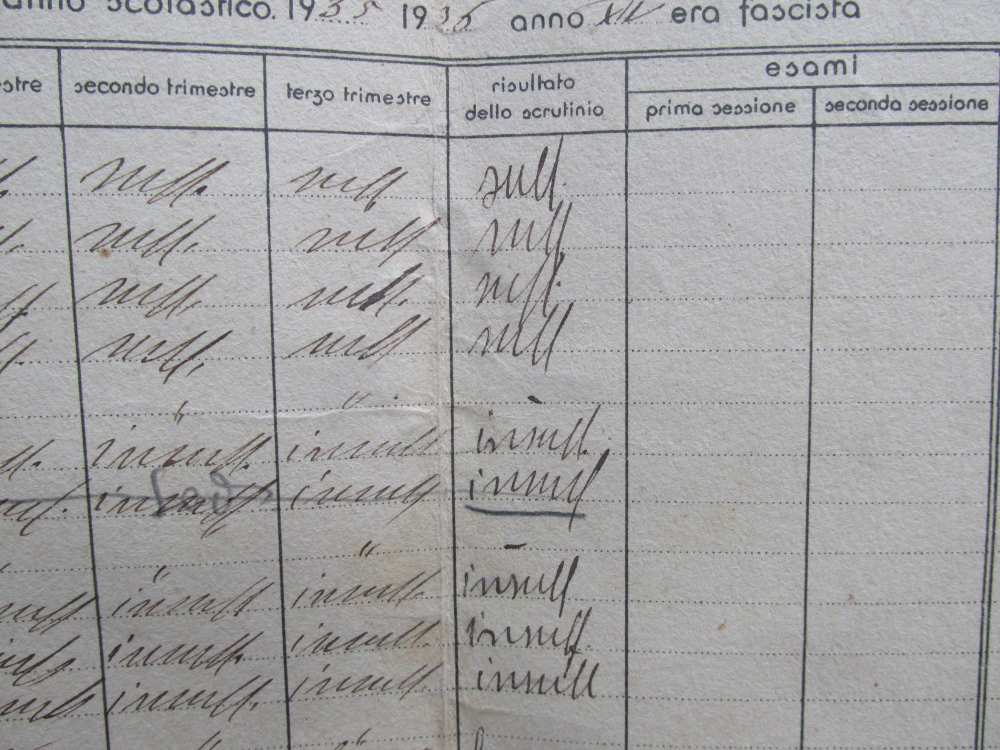 anno scolastico. 1935 1936 anno XIV era fascista
estre secondo trimestre terzo trimestre risultato dello scrutinio esami
prima sessione seconda sessione
suff. suff suff.
suff. suff suff
suff. suff. suff.
suff. suff suff
" " –
insuff. insuff insuff.
insuff insuff insuff
" " –
insuff insuff. insuff
insuff. insuff. insuff
insuff. insuff. insuff